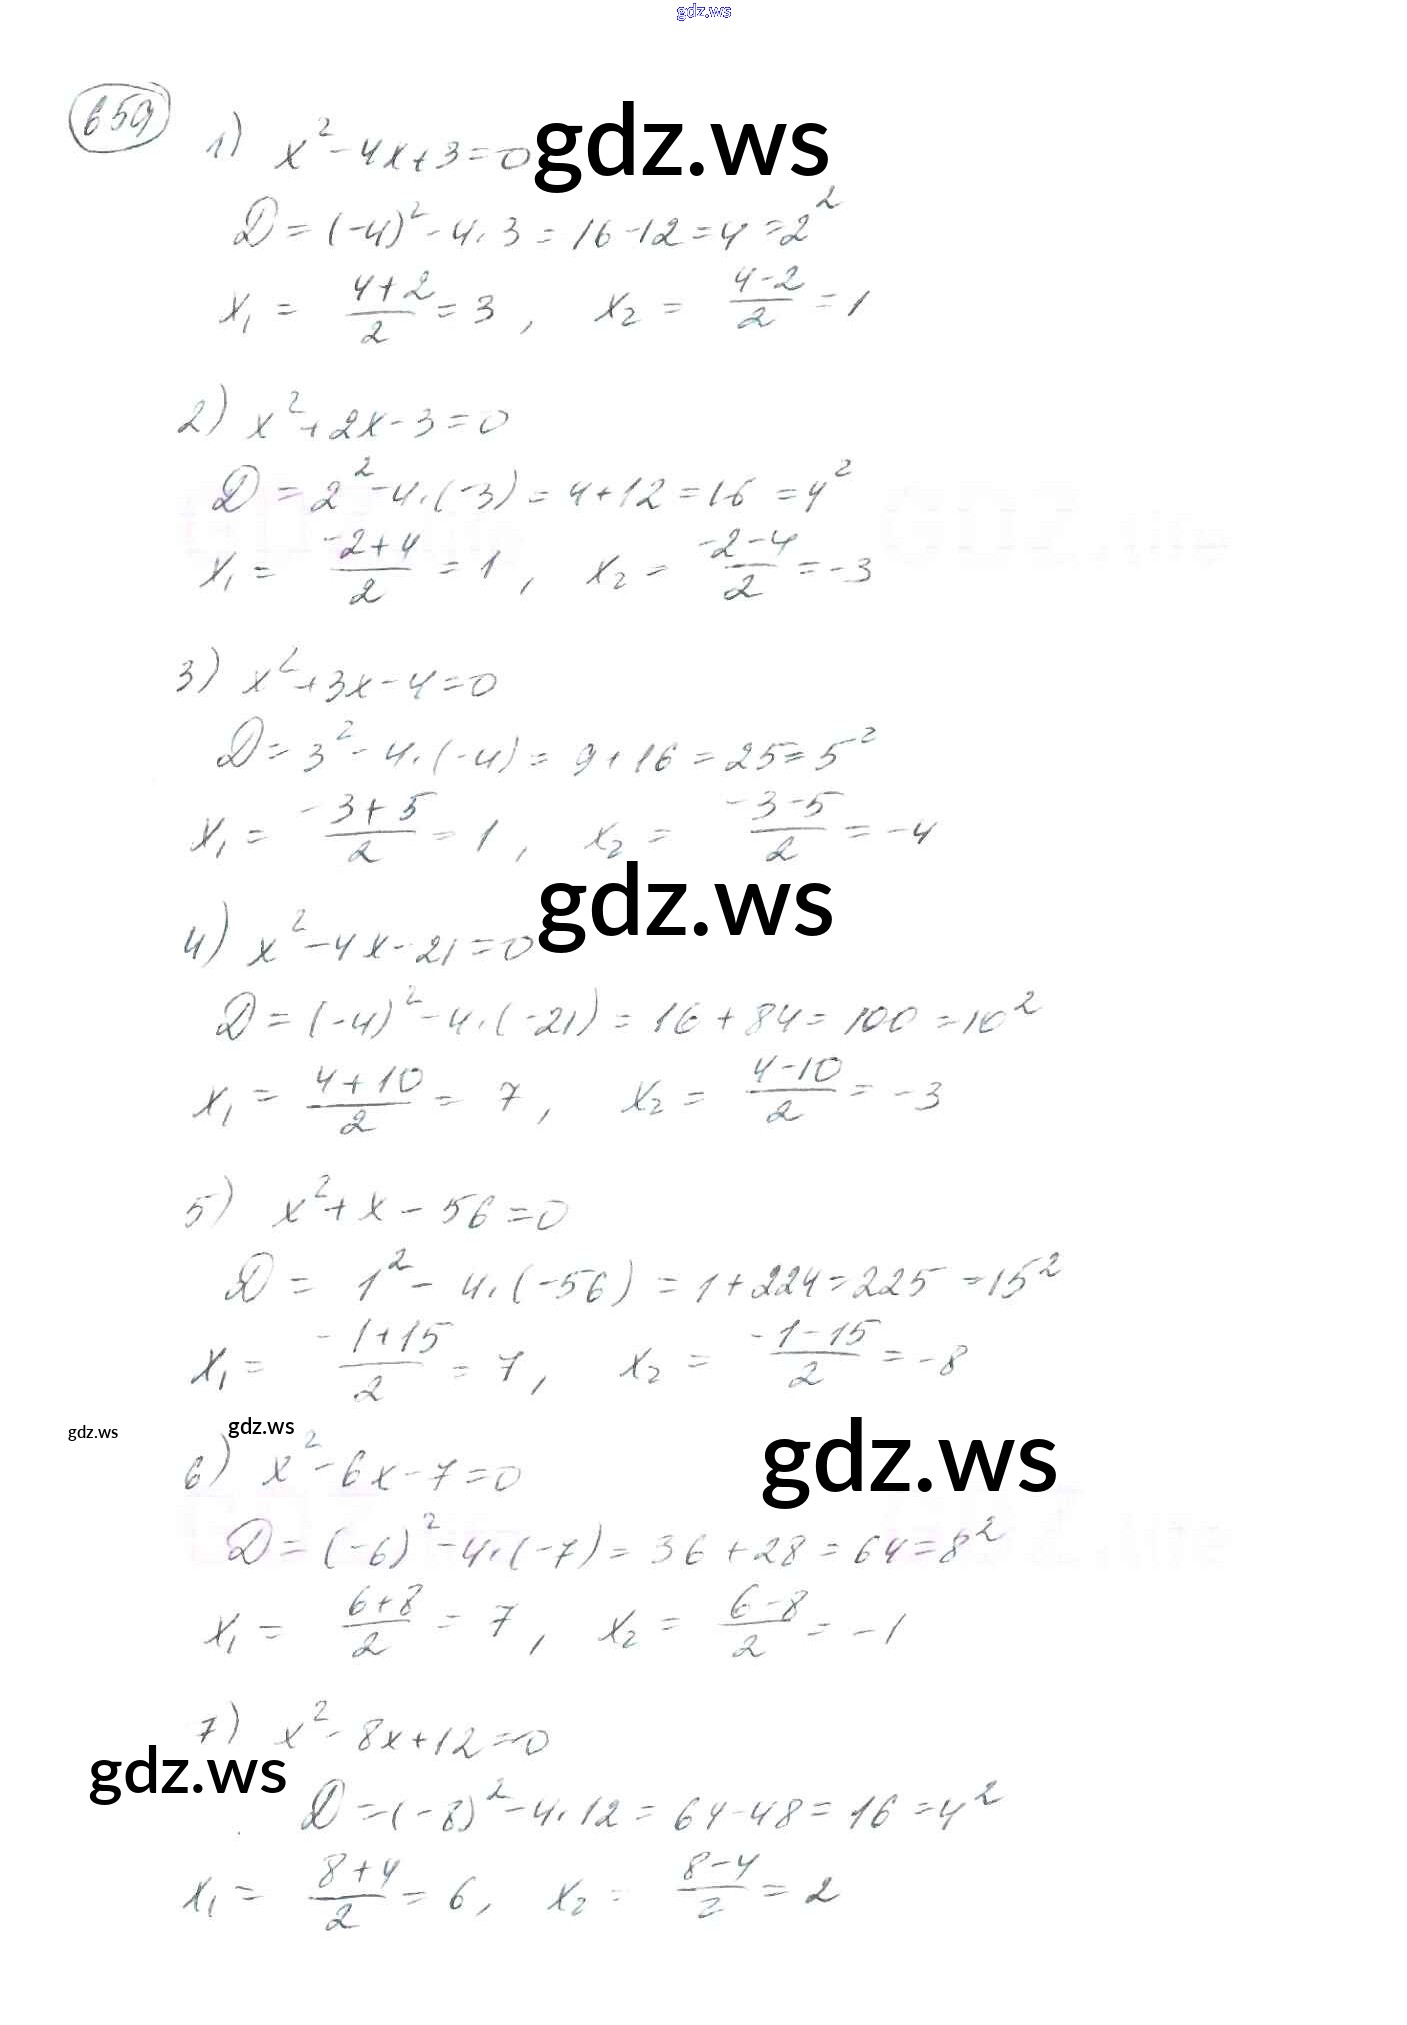 gdz.ws
659
1) x² - 4x + 3 = 0
gdz.ws
D = (-4)² - 4·3 = 16 - 12 = 4 = 2²
x₁ = (4+2)/2 = 3, x₂ = (4-2)/2 = 1
2) x² + 2x - 3 = 0
D = 2² - 4·(-3) = 4 + 12 = 16 = 4²
GDZ.life GDZ.life
x₁ = (-2+4)/2 = 1, x₂ = (-2-4)/2 = -3
3) x² + 3x - 4 = 0
D = 3² - 4·(-4) = 9 + 16 = 25 = 5²
x₁ = (-3+5)/2 = 1, x₂ = (-3-5)/2 = -4
gdz.ws
4) x² - 4x - 21 = 0
D = (-4)² - 4·(-21) = 16 + 84 = 100 = 10²
x₁ = (4+10)/2 = 7, x₂ = (4-10)/2 = -3
5) x² + x - 56 = 0
D = 1² - 4·(-56) = 1 + 224 = 225 = 15²
x₁ = (-1+15)/2 = 7, x₂ = (-1-15)/2 = -8
gdz.ws gdz.ws
gdz.ws
6) x² - 6x - 7 = 0
GDZ.life GDZ.life
D = (-6)² - 4·(-7) = 36 + 28 = 64 = 8²
x₁ = (6+8)/2 = 7, x₂ = (6-8)/2 = -1
7) x² - 8x + 12 = 0
gdz.ws
D = (-8)² - 4·12 = 64 - 48 = 16 = 4²
x₁ = (8+4)/2 = 6, x₂ = (8-4)/2 = 2